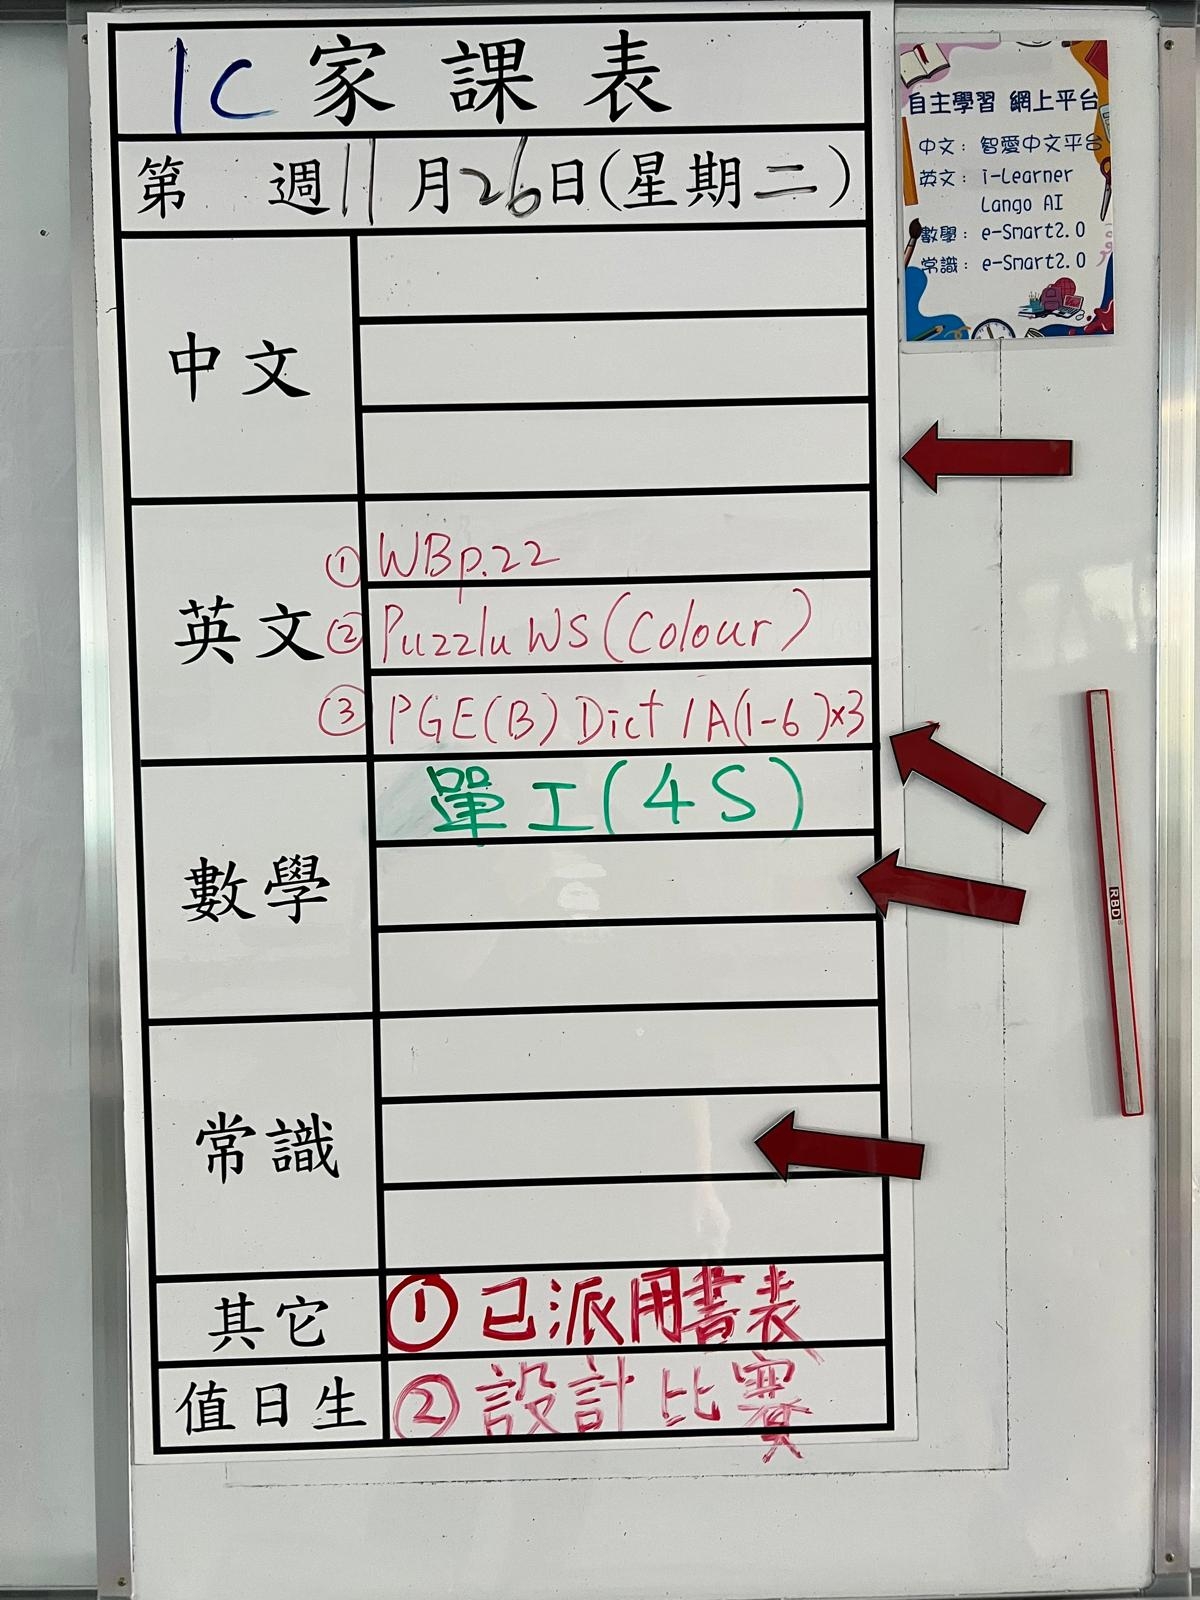 1C 家課表
第 週 11月26日(星期二)
中文
英文
① WB p.22
② Puzzlu WS (Colour)
③ PGE(B) Dict 1A(1-6)x3
數學
單工(4S)
常識
其它
① 已派用書表
值日生
② 設計比賽
自主學習 網上平台
中文：智愛中文平台
英文：i-Learner
Lango AI
數學：e-Smart2.0
常識：e-Smart2.0
RBD